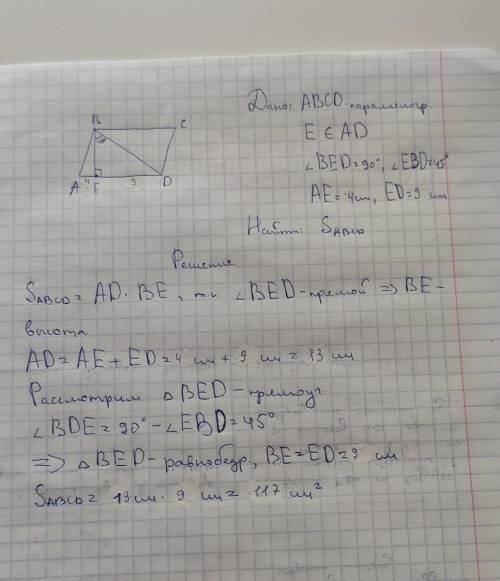 Дано: ABCD-параллелогр.
E ∈ AD
∠BED=90°, ∠EBD=45°
AE=4см, ED=9 см
Найти: S_ABCD
B C
45°
A 4 E 9 D
Решение
S_ABCD = AD · BE, т.к ∠BED-прямой => BE-
высота
AD = AE + ED = 4 см + 9 см = 13 см
Рассмотрим △BED-прямоуг.
∠BDE = 90° - ∠EBD = 45°
=> △BED-равнобедр, BE=ED=9 см
S_ABCD = 13см · 9 см = 117 см²